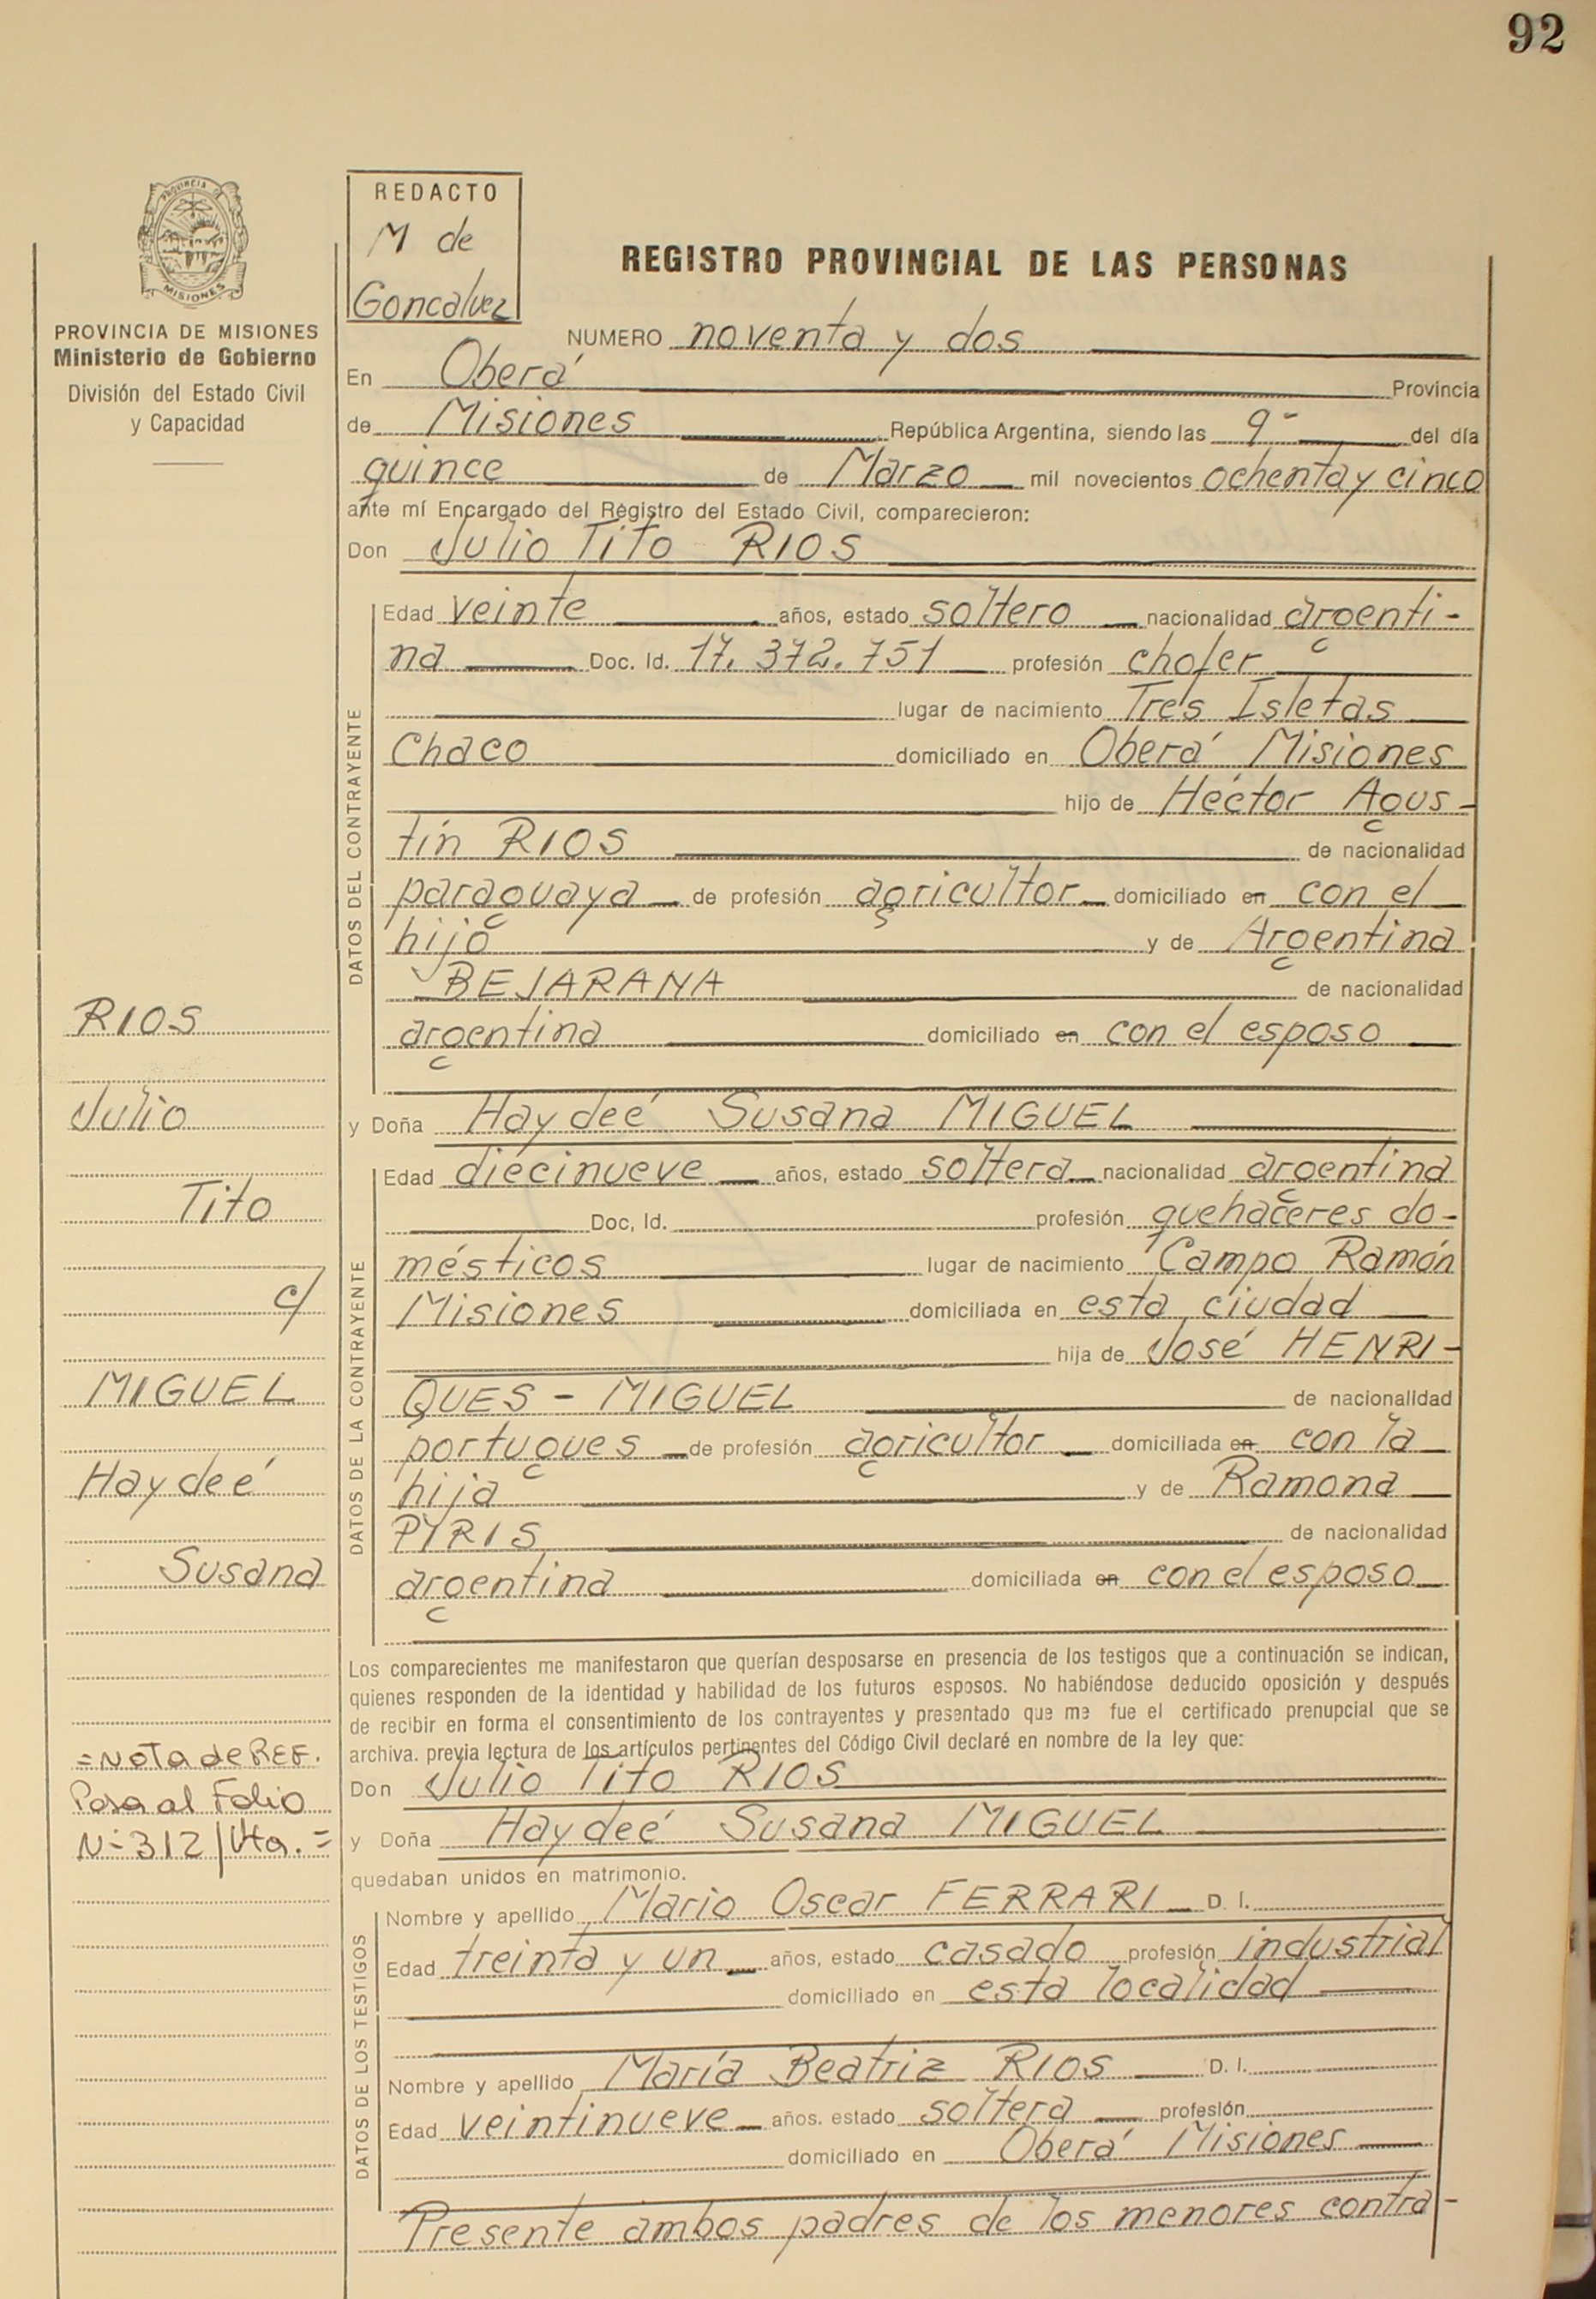 92
PROVINCIA DE
MISIONES
PROVINCIA DE MISIONES
Ministerio de Gobierno
División del Estado Civil
y Capacidad
REDACTO
M de
Goncalvez
REGISTRO PROVINCIAL DE LAS PERSONAS
NUMERO noventa y dos
En Oberá Provincia
de Misiones República Argentina, siendo las 9- del día
quince de Marzo mil novecientos ochenta y cinco
ante mí Encargado del Registro del Estado Civil, comparecieron:
Don Julio Tito RIOS
DATOS DEL CONTRAYENTE
Edad veinte años, estado soltero nacionalidad argenti-
na Doc. Id. 17.372.751 profesión chofer
lugar de nacimiento Tres Isletas
Chaco domiciliado en Oberá Misiones
hijo de Héctor Agus-
tín RIOS de nacionalidad
paraguaya de profesión agricultor domiciliado en con el
hijo y de Argentina
BEJARANA de nacionalidad
argentina domiciliado en con el esposo
y Doña Haydeé Susana MIGUEL
DATOS DE LA CONTRAYENTE
Edad diecinueve años, estado soltera nacionalidad argentina
Doc, Id. profesión quehaceres do-
mésticos lugar de nacimiento Campo Ramón
Misiones domiciliada en esta ciudad
hija de José HENRI-
QUES - MIGUEL de nacionalidad
portugues de profesión agricultor domiciliada en con la
hija y de Ramona
PYRIS de nacionalidad
argentina domiciliada en con el esposo
Los comparecientes me manifestaron que querían desposarse en presencia de los testigos que a continuación se indican,
quienes responden de la identidad y habilidad de los futuros esposos. No habiéndose deducido oposición y después
de recibir en forma el consentimiento de los contrayentes y presentado que me fue el certificado prenupcial que se
archiva. previa lectura de los artículos pertinentes del Código Civil declaré en nombre de la ley que:
Don Julio Tito RIOS
y Doña Haydeé Susana MIGUEL
quedaban unidos en matrimonio.
DATOS DE LOS TESTIGOS
Nombre y apellido Mario Oscar FERRARI D. I.
Edad treinta y un años, estado casado profesión industrial
domiciliado en esta localidad
Nombre y apellido María Beatriz RIOS D. I.
Edad veintinueve años. estado soltera profesión
domiciliado en Oberá Misiones
Presente ambos padres de los menores contra-
RIOS
Julio
Tito
c/
MIGUEL
Haydeé
Susana
=Nota de REF.
Pasa al Folio
N-312/Vta.=